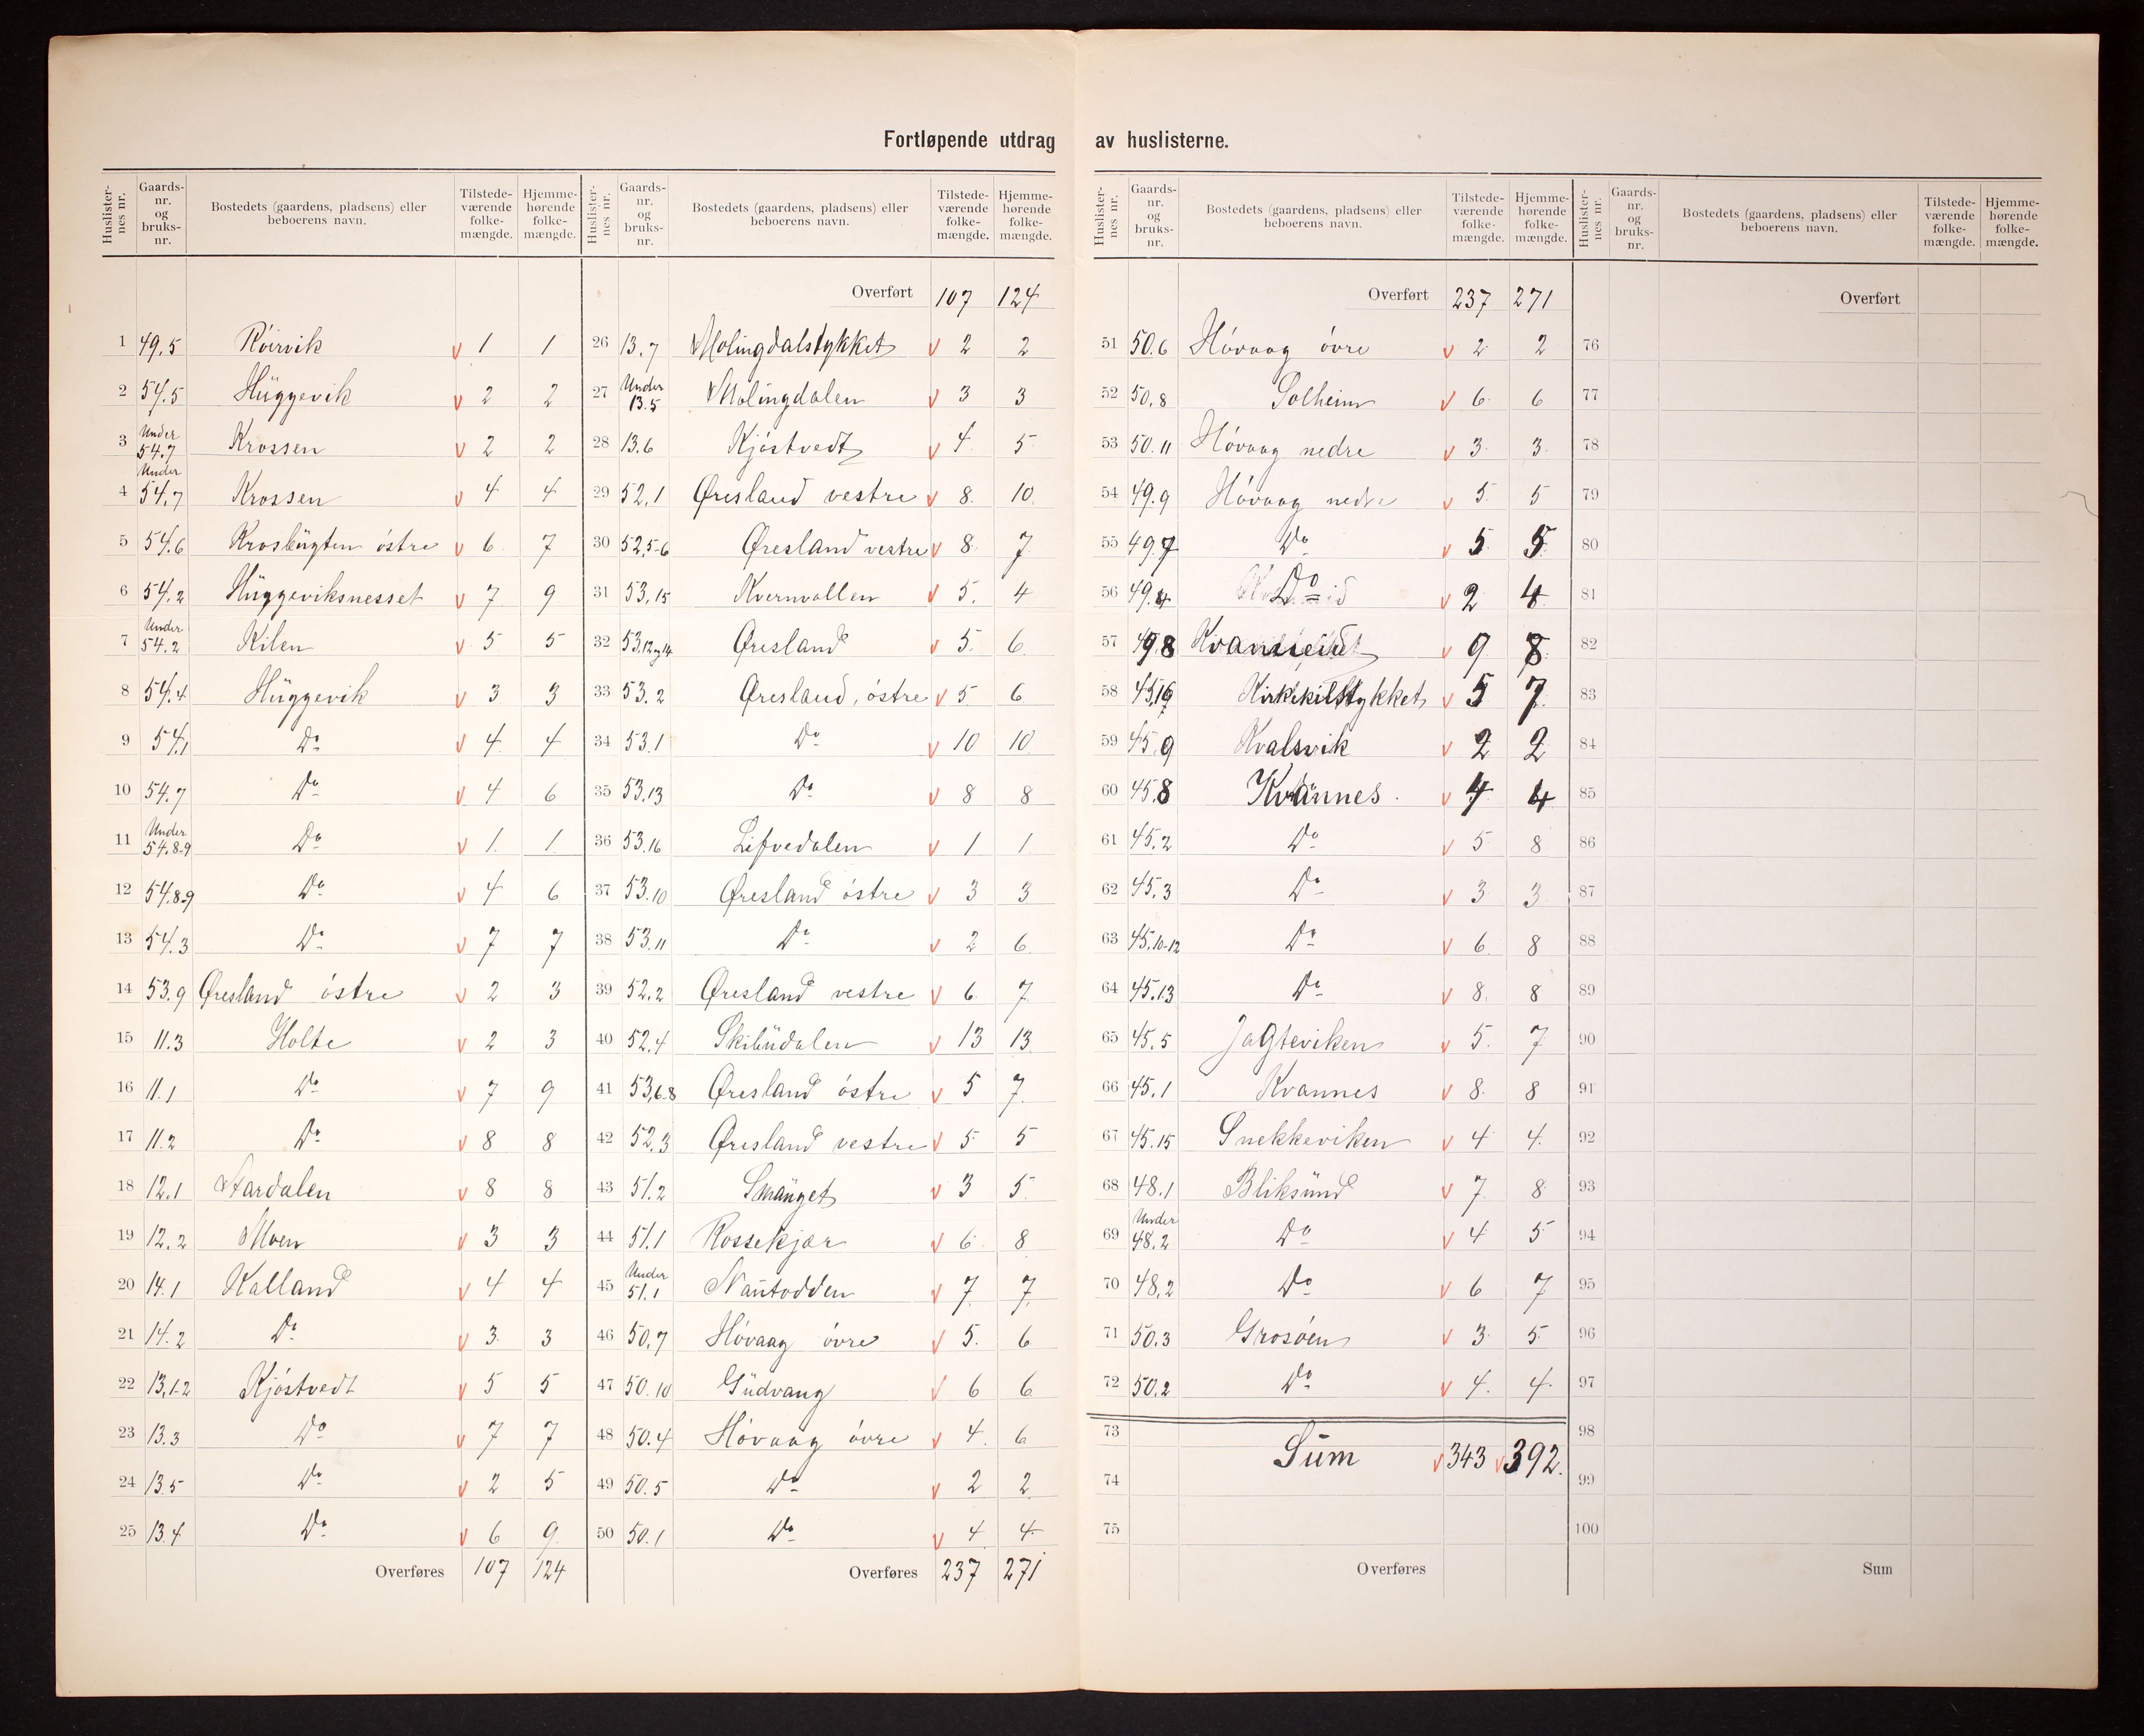 Fortløpende utdrag av huslisterne.
Huslisternes nr. Gaards-nr. og bruks-nr. Bostedets (gaardens, pladsens) eller beboerens navn. Tilstedeværende folkemængde. Hjemmehørende folkemængde.
1 49.5 Röirvik v 1 1
2 54.5 Hüggevik v 2 2
3 Under 54.7 Krossen v 2 2
4 Under 54.7 Krossen v 4 4
5 54.6 Krosbugten östre v 6 7
6 54.2 Hüggeviksnesset v 7 9
7 Under 54.2 Kilen v 5 5
8 54.4 Hüggevik v 3 3
9 54.1 Do v 4 4
10 54.7 Do v 4 6
11 Under 54.8-9 Do v 1 1
12 54.8-9 Do v 4 6
13 54.3 Do v 7 7
14 53.9 Øresland östre v 2 3
15 11.3 Holte v 2 3
16 11.1 Do v 7 9
17 11.2 Do v 8 8
18 12.1 Aardalen v 8 8
19 12.2 Moen v 3 3
20 14.1 Kalland v 4 4
21 14.2 Do v 3 3
22 13,1-2 Kjöstvedt v 5 5
23 13.3 Do v 7 7
24 13.5 Do v 2 5
25 13.4 Do v 6 9
Overføres 107 124
Huslisternes nr. Gaards-nr. og bruks-nr. Bostedets (gaardens, pladsens) eller beboerens navn. Tilstedeværende folkemængde. Hjemmehørende folkemængde.
Overført 107 124
26 13.7 Molingdalstykket v 2 2
27 Under 13.5 Molingdalen v 3 3
28 13.6 Kjöstvedt v 4 5
29 52,1 Øresland vestre v 8 10
30 52,5-6 Øresland vestre v 8 7
31 53,15 Kvernvollen v 5. 4
32 53,12og14 Øresland v 5. 6
33 53.2 Øresland, östre v 5 6
34 53.1 Do v 10 10
35 53.13 Do v 8 8
36 53.16 Lifvedalen v 1 1
37 53.10 Øresland östre v 3 3
38 53.11 Do v 2 6
39 52.2 Øresland vestre v 6 7
40 52.4 Skibüdalen v 13 13
41 53,6-8 Øresland östre v 5 7
42 52.3 Øresland vestre v 5 5
43 51.2 Smänget v 3 5
44 51.1 Rossekjær v 6 8
45 Under 51.1 Naütodden v 7 7
46 50.7 Hövaag övre v 5. 6
47 50.10 Güdvang v 6 6
48 50.4 Hövaag övre v 4 6
49 50.5 Do v 2 2
50 50.1 Do v 4 4
Overføres 237 271
Huslisternes nr. Gaards-nr. og bruks-nr. Bostedets (gaardens, pladsens) eller beboerens navn. Tilstedeværende folkemængde. Hjemmehørende folkemængde.
Overført 237 271
51 50.6 Hövaag övre v 2 2
52 50.8 Solheim v 6 6
53 50.11 Hövaag nedre v 3 3
54 49.9 Hövaag nedre v 5 5
55 49.7 Do v 5 5
56 49.4 Do v 2 4
57 49.8 v 9 8
58 45,19 Kirkekilstykket v 5 7
59 45.9 Kvalsvik v 2 2
60 45.8 Kvannes v 4 4
61 45.2 Do v 5 8
62 45.3 Do v 3 3
63 45.10-12 Do v 6 8
64 45.13 Do v 8. 8
65 45.5 Jagteviken v 5. 7
66 45.1 Kvannes v 8 8
67 45.15 Snekkeviken v 4 4
68 48.1 Bliksünd v 7 8
69 Under 48.2 Do v 4 5
70 48,2 Do v 6 7
71 50.3 Grosöen v 3 5
72 50.2 Do v 4. 4.
73
Süm v 343 v 392.
74
75
Overføres
Huslisternes nr. Gaards-nr. og bruks-nr. Bostedets (gaardens, pladsens) eller beboerens navn. Tilstedeværende folkemængde. Hjemmehørende folkemængde.
Overført
76
77
78
79
80
81
82
83
84
85
86
87
88
89
90
91
92
93
94
95
96
97
98
99
100
Sum